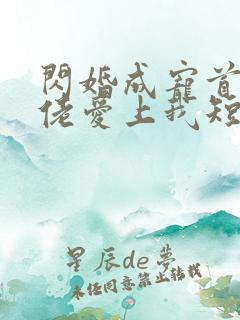 閃婚成寵首
佬愛上我短
星辰de夢
未經同意禁止轉載